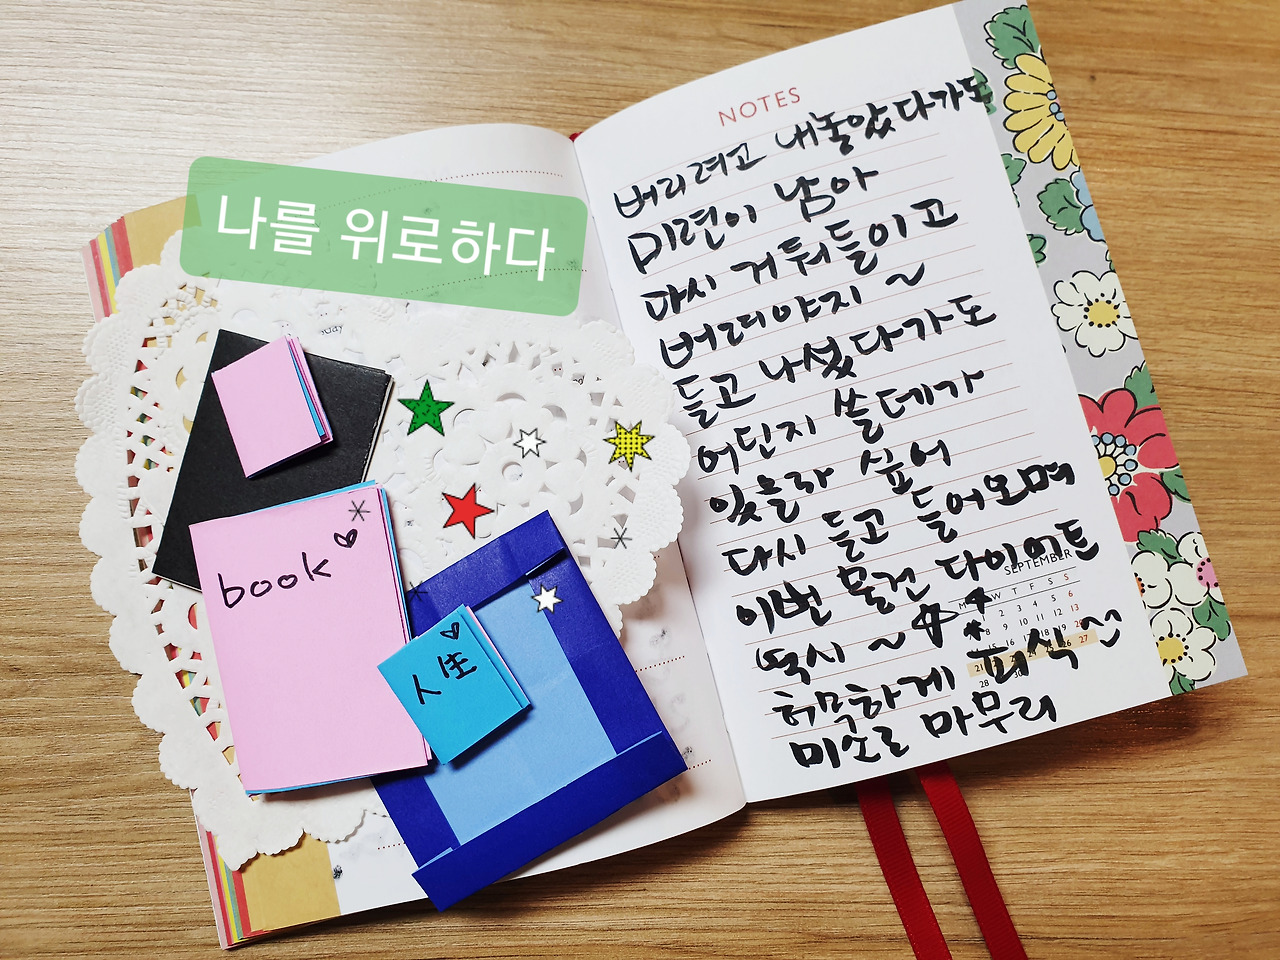 나를 위로하다
book
人生
NOTES
버리려고 내놓았다가도
미련이 남아
다시 거둬들이고
버려야지 ~
들고 나섰다가도
어딘지 쓸데가
있을라 싶어
다시 들고 들어오며
이번 물건 다이어트
역시 ~
허무하게 피식
미소로 마무리
SEPTEMBER